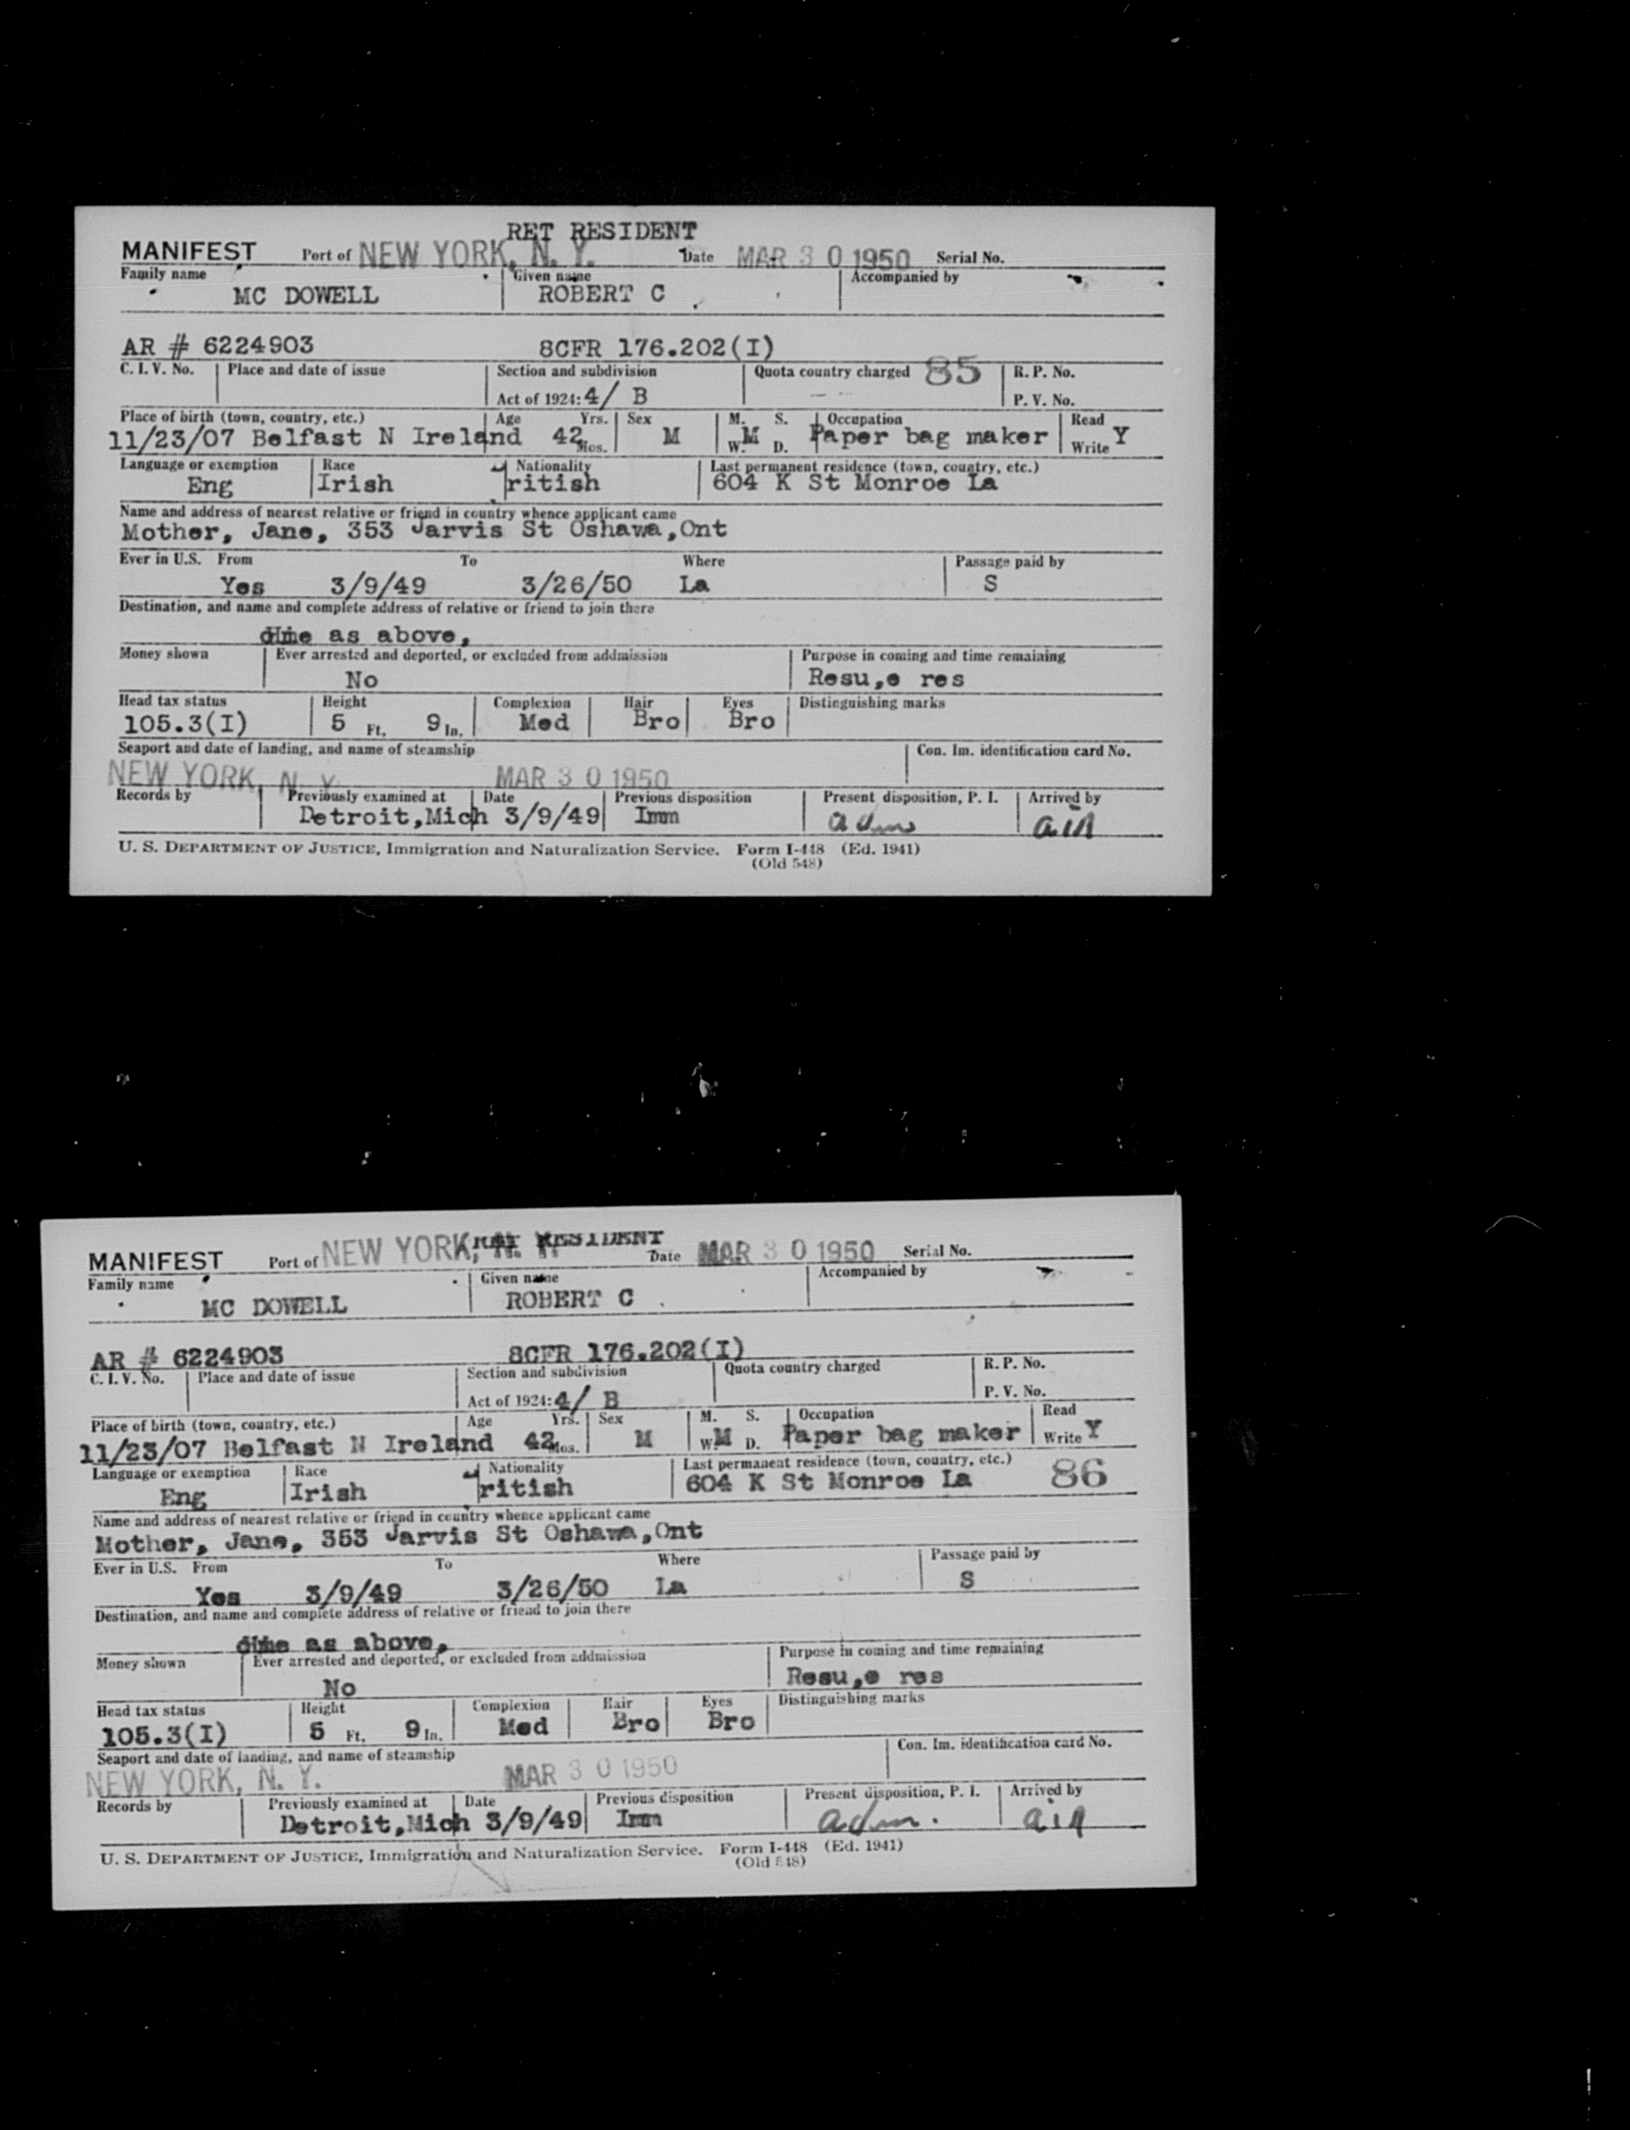 RET RESIDENT
MANIFEST Port of NEW YORK, N. Y. Date MAR 30 1950 Serial No.
Family name Given name Accompanied by
MC DOWELL ROBERT C
AR # 6224903 8CFR 176.202(I)
C. I. V. No. Place and date of issue Section and subdivision Quota country charged 85 R. P. No.
Act of 1924: 4/ B P. V. No.
Place of birth (town, country, etc.) Age Yrs. Sex M. S. Occupation Read
11/23/07 Belfast N Ireland 42 Mos. M W. M D. Paper bag maker Write Y
Language or exemption Race Nationality Last permanent residence (town, country, etc.)
Eng Irish ritish 604 K St Monroe La
Name and address of nearest relative or friend in country whence applicant came
Mother, Jane, 353 Jarvis St Oshawa,Ont
Ever in U.S. From To Where Passage paid by
Yes 3/9/49 3/26/50 La S
Destination, and name and complete address of relative or friend to join there
as above,
Money shown Ever arrested and deported, or excluded from addmission Purpose in coming and time remaining
No Resu,e res
Head tax status Height Complexion Hair Eyes Distinguishing marks
105.3(I) 5 Ft. 9 In. Med Bro Bro
Seaport and date of landing, and name of steamship Con. Im. identification card No.
NEW YORK, N. Y. MAR 30 1950
Records by Previously examined at Date Previous disposition Present disposition, P. I. Arrived by
Detroit,Mich 3/9/49 Imm adm air
U. S. DEPARTMENT OF JUSTICE, Immigration and Naturalization Service. Form I-448 (Ed. 1941)
(Old 548)
RET RESIDENT
MANIFEST Port of NEW YORK, N. Y. Date MAR 30 1950 Serial No.
Family name Given name Accompanied by
MC DOWELL ROBERT C
AR # 6224903 8CFR 176.202(I)
C. I. V. No. Place and date of issue Section and subdivision Quota country charged R. P. No.
Act of 1924: 4/ B P. V. No.
Place of birth (town, country, etc.) Age Yrs. Sex M. S. Occupation Read
11/23/07 Belfast N Ireland 42 Mos. M W. M D. Paper bag maker Write Y
Language or exemption Race Nationality Last permanent residence (town, country, etc.) 86
Eng Irish ritish 604 K St Monroe La
Name and address of nearest relative or friend in country whence applicant came
Mother, Jane, 353 Jarvis St Oshawa,Ont
Ever in U.S. From To Where Passage paid by
Yes 3/9/49 3/26/50 La S
Destination, and name and complete address of relative or friend to join there
as above,
Money shown Ever arrested and deported, or excluded from addmission Purpose in coming and time remaining
No Resu,e res
Head tax status Height Complexion Hair Eyes Distinguishing marks
105.3(I) 5 Ft. 9 In. Med Bro Bro
Seaport and date of landing, and name of steamship Con. Im. identification card No.
NEW YORK, N. Y. MAR 30 1950
Records by Previously examined at Date Previous disposition Present disposition, P. I. Arrived by
Detroit,Mich 3/9/49 Imm adm. air
U. S. DEPARTMENT OF JUSTICE, Immigration and Naturalization Service. Form I-448 (Ed. 1941)
(Old 548)